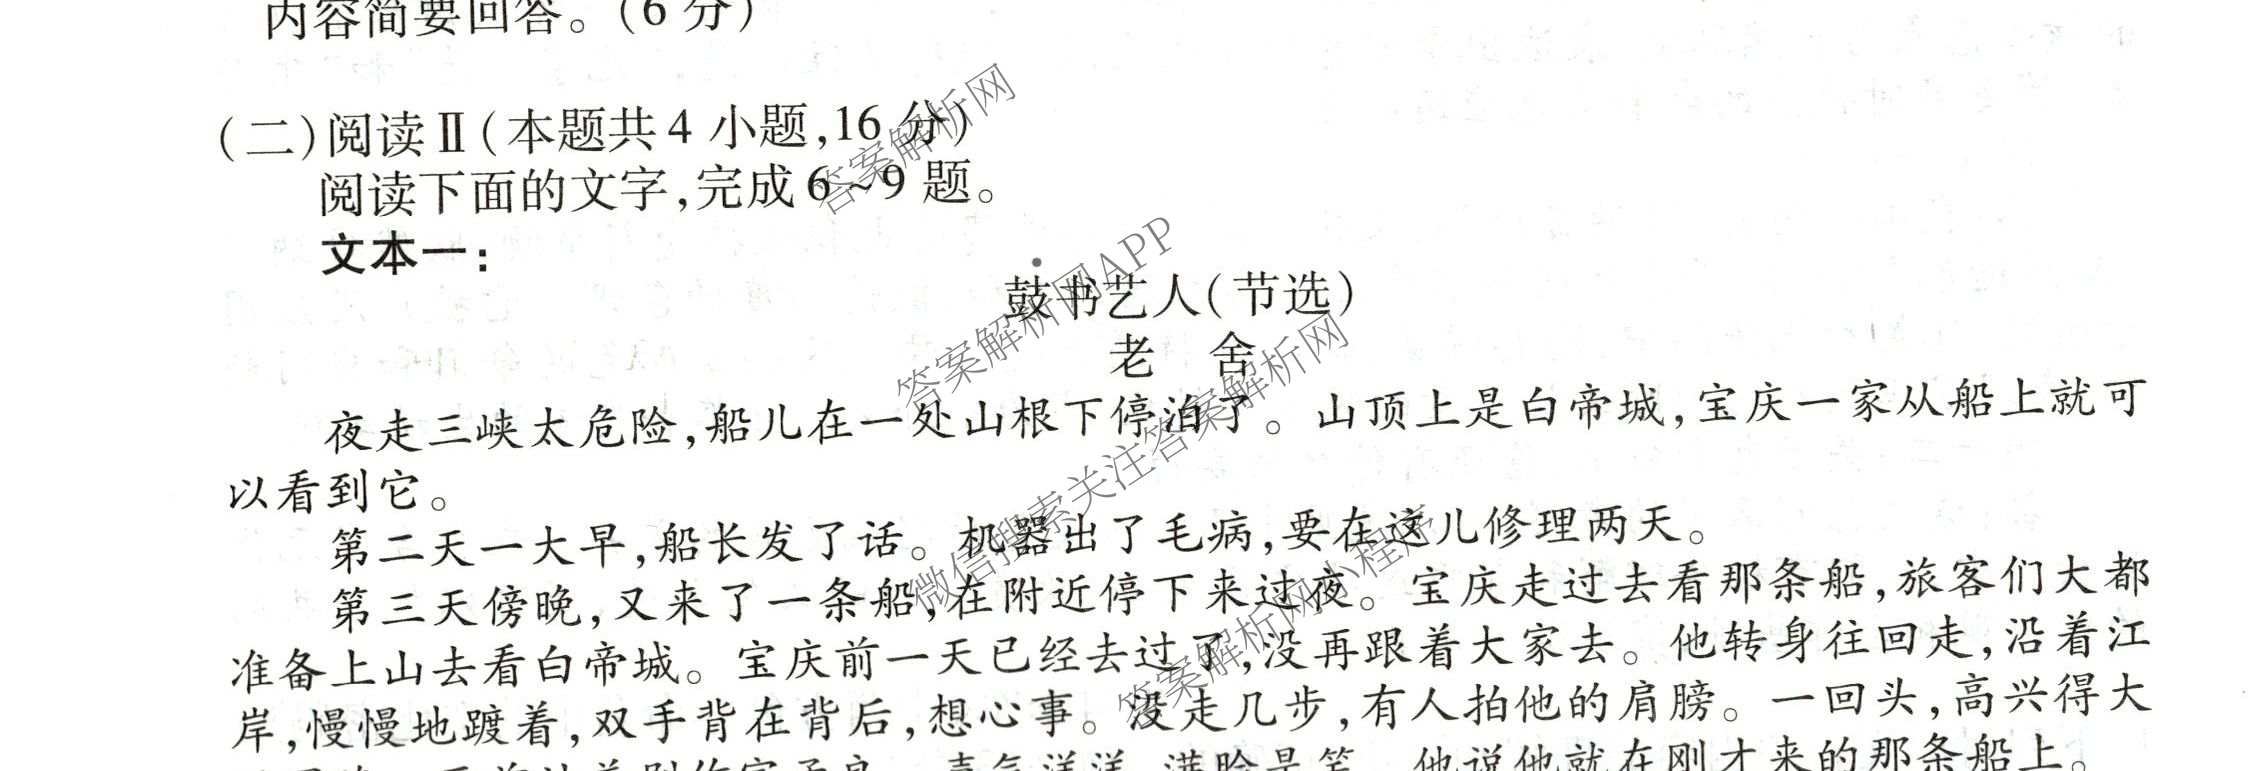 内容简要回答。(6 分)
(二)阅读Ⅱ(本题共 4 小题,16 分)
阅读下面的文字,完成 6~9 题。
文本一:
鼓书艺人(节选)
老 舍
夜走三峡太危险,船儿在一处山根下停泊了。山顶上是白帝城,宝庆一家从船上就可
以看到它。
第二天一大早,船长发了话。机器出了毛病,要在这儿修理两天。
第三天傍晚,又来了一条船,在附近停下来过夜。宝庆走过去看那条船,旅客们大都
准备上山去看白帝城。宝庆前一天已经去过了,没再跟着大家去。他转身往回走,沿着江
岸,慢慢地踱着,双手背在背后,想心事。没走几步,有人拍他的肩膀。一回头,高兴得大
喜气洋洋,满脸是笑。他说他就在刚才来的那条船上。
答案解析网
答案解析网APP
微信搜索关注答案解析网
答案解析网小程序